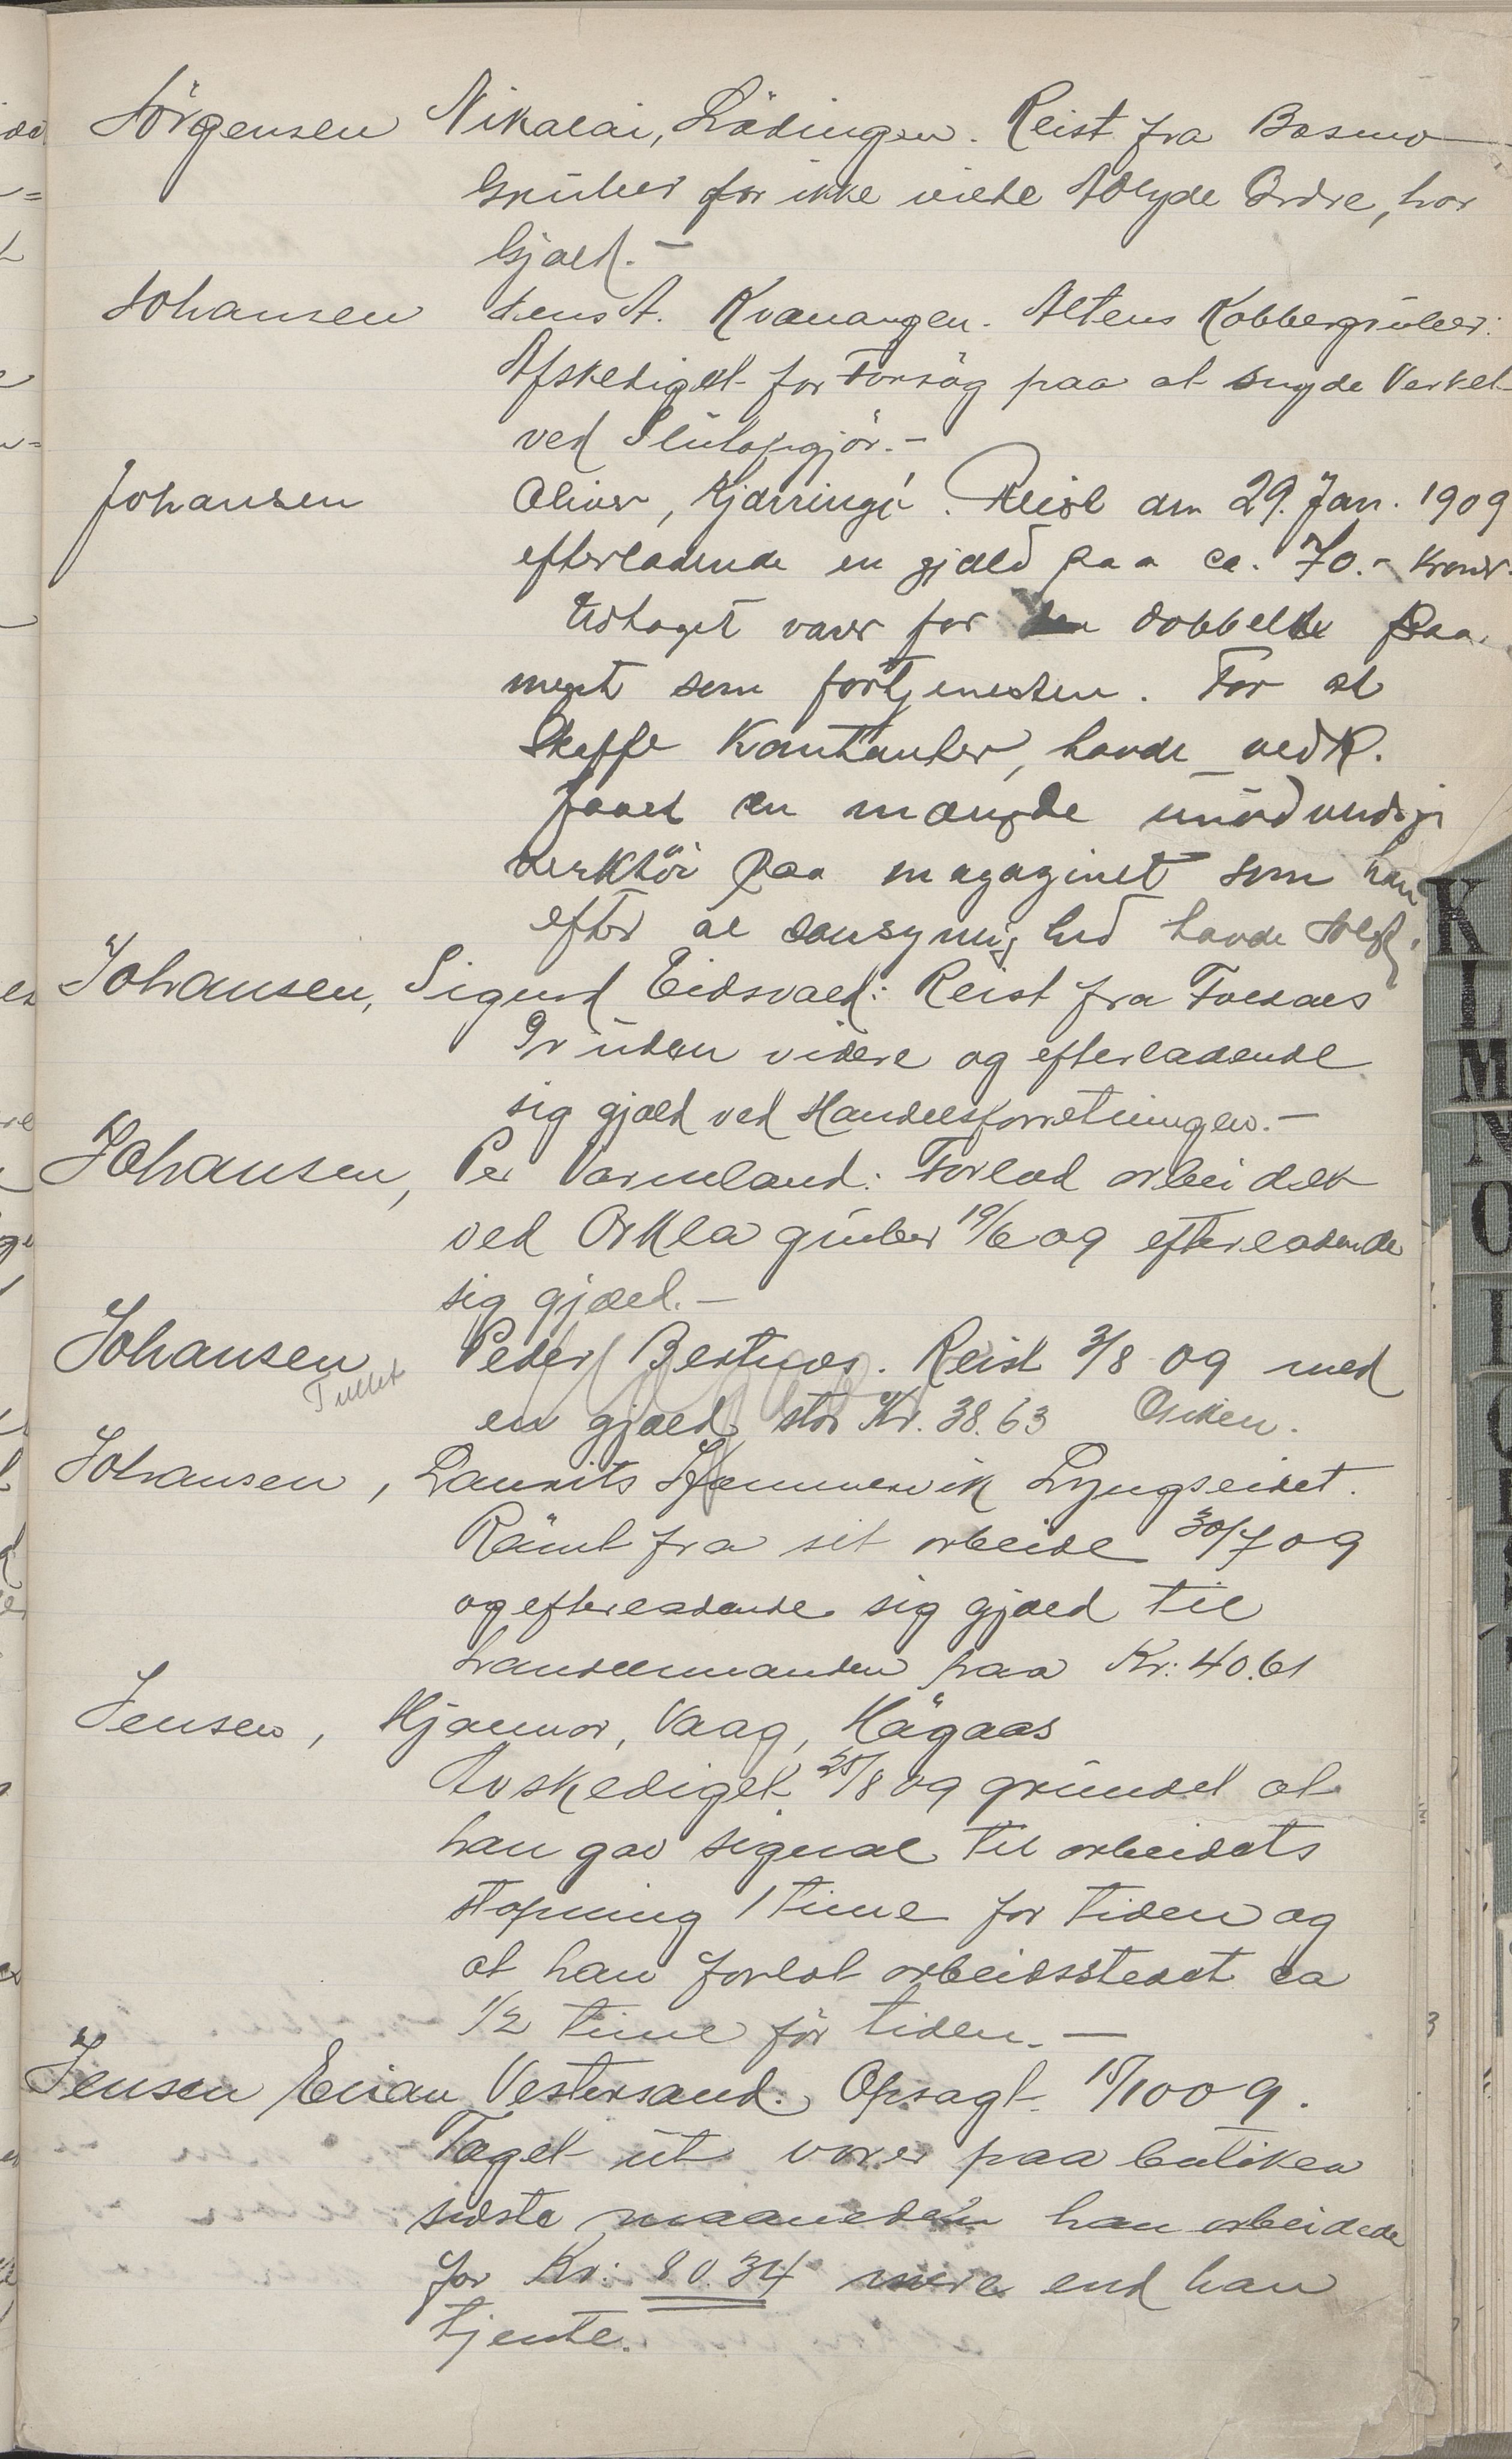 Jörgensen Nikolai, Lödingen. Reist fra Bosmo
Gruber for ikke vilde Adlyde Ordre, har
Gjæld. -
Johansen Jens A. Kvænangen. Altens Kobbergruber:
Afskediget for Forsög paa at snyde Verket
ved Slutopgjör. -
Johansen Oliver, Kjærringö. Reist den 29. Jan. 1909
efterladende en gjæld paa ca. 70.- kroner.
Udtaget varer for dobbelte saa
ment som fortjenesten. For at
Skaffe Kontanter, havde vedk.
faaet en mængde unödvendig
verktöi paa magazinet som han
efter al sansynlighed havde solgt.
Johansen, Sigurd Eidsvold: Reist fra Foldals
Gruben videre og efterladende
sig gjæld ved Handelsforretningen. -
Johansen, Per Varmland: Forlod arbeidet
ved Orkla gruber 19/6 09 efterladende
sig gjæld. -
Johansen Peder Bertnes. Reist 3/8 09 med
en gjæld stor Kr. 38.63
Johansen, Laurits Hammervik Lyngseidet.
Römt fra sit arbeide 30/7 09
og efterladende sig gjæld til
handelsmanden paa Kr: 40.61
Jensen, Hjalmar, Vaag, Högaas
Avskediget 25/8 09 grundet at
han gav signal til arbeidets
stopning 1 time for tiden og
at han forlot arbeidsstedet ca
1/2 time för tiden. -
Jensen Vestersand. Opsagt 15/10 09.
Taget ut varer paa butiken
sidste maaneden han arbeidede
for Kr: 80.34 mere end han
tjente.
K
L
M
N
O